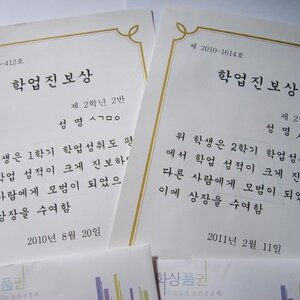 -412호
학업진보상
제 2학년 2반
성 명 ㅅㄱㅁㅇ
생은 1학기 학업성취도 평
학업 성적이 크게 진보하여
사람에게 모범이 되었으
상장을 수여함
2010년 8월 20일
제 2010-1614호
학업진보상
제 2
성 명
위 학생은 2학기 학업성
에서 학업 성적이 크게 진
다른 사람에게 모범이 되
이에 상장을 수여함
2011년 2월 11일
화상품권